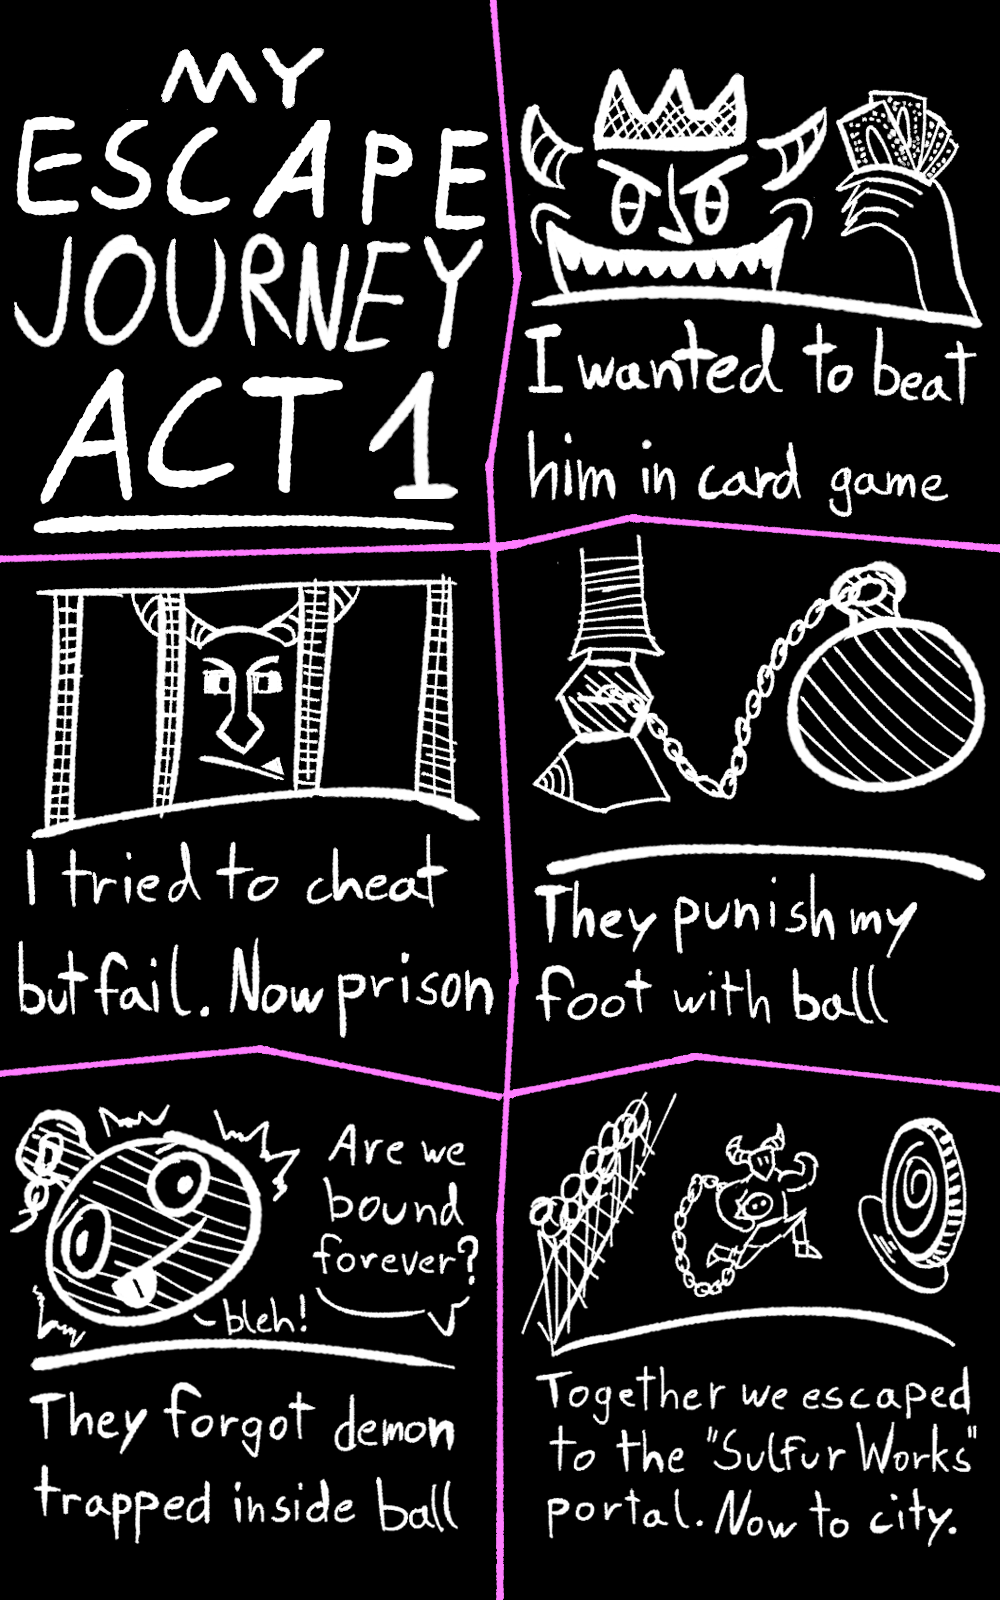 MY
ESCAPE
JOURNEY
ACT 1
I wanted to beat
him in card game
I tried to cheat
but fail. Now prison
They punish my
foot with ball
Are we
bound
forever?
bleh!
They forgot demon
trapped inside ball
Together we escaped
to the "Sulfur Works"
portal. Now to city.